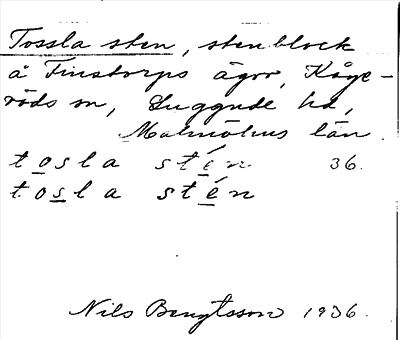 Tossla sten, stenblock
å Finstorps ägor, Kåge-
röds sn, Luggude hd,
Malmöhus län.
tosla stén 36.
tosla stén
Nils Bengtsson 1936.